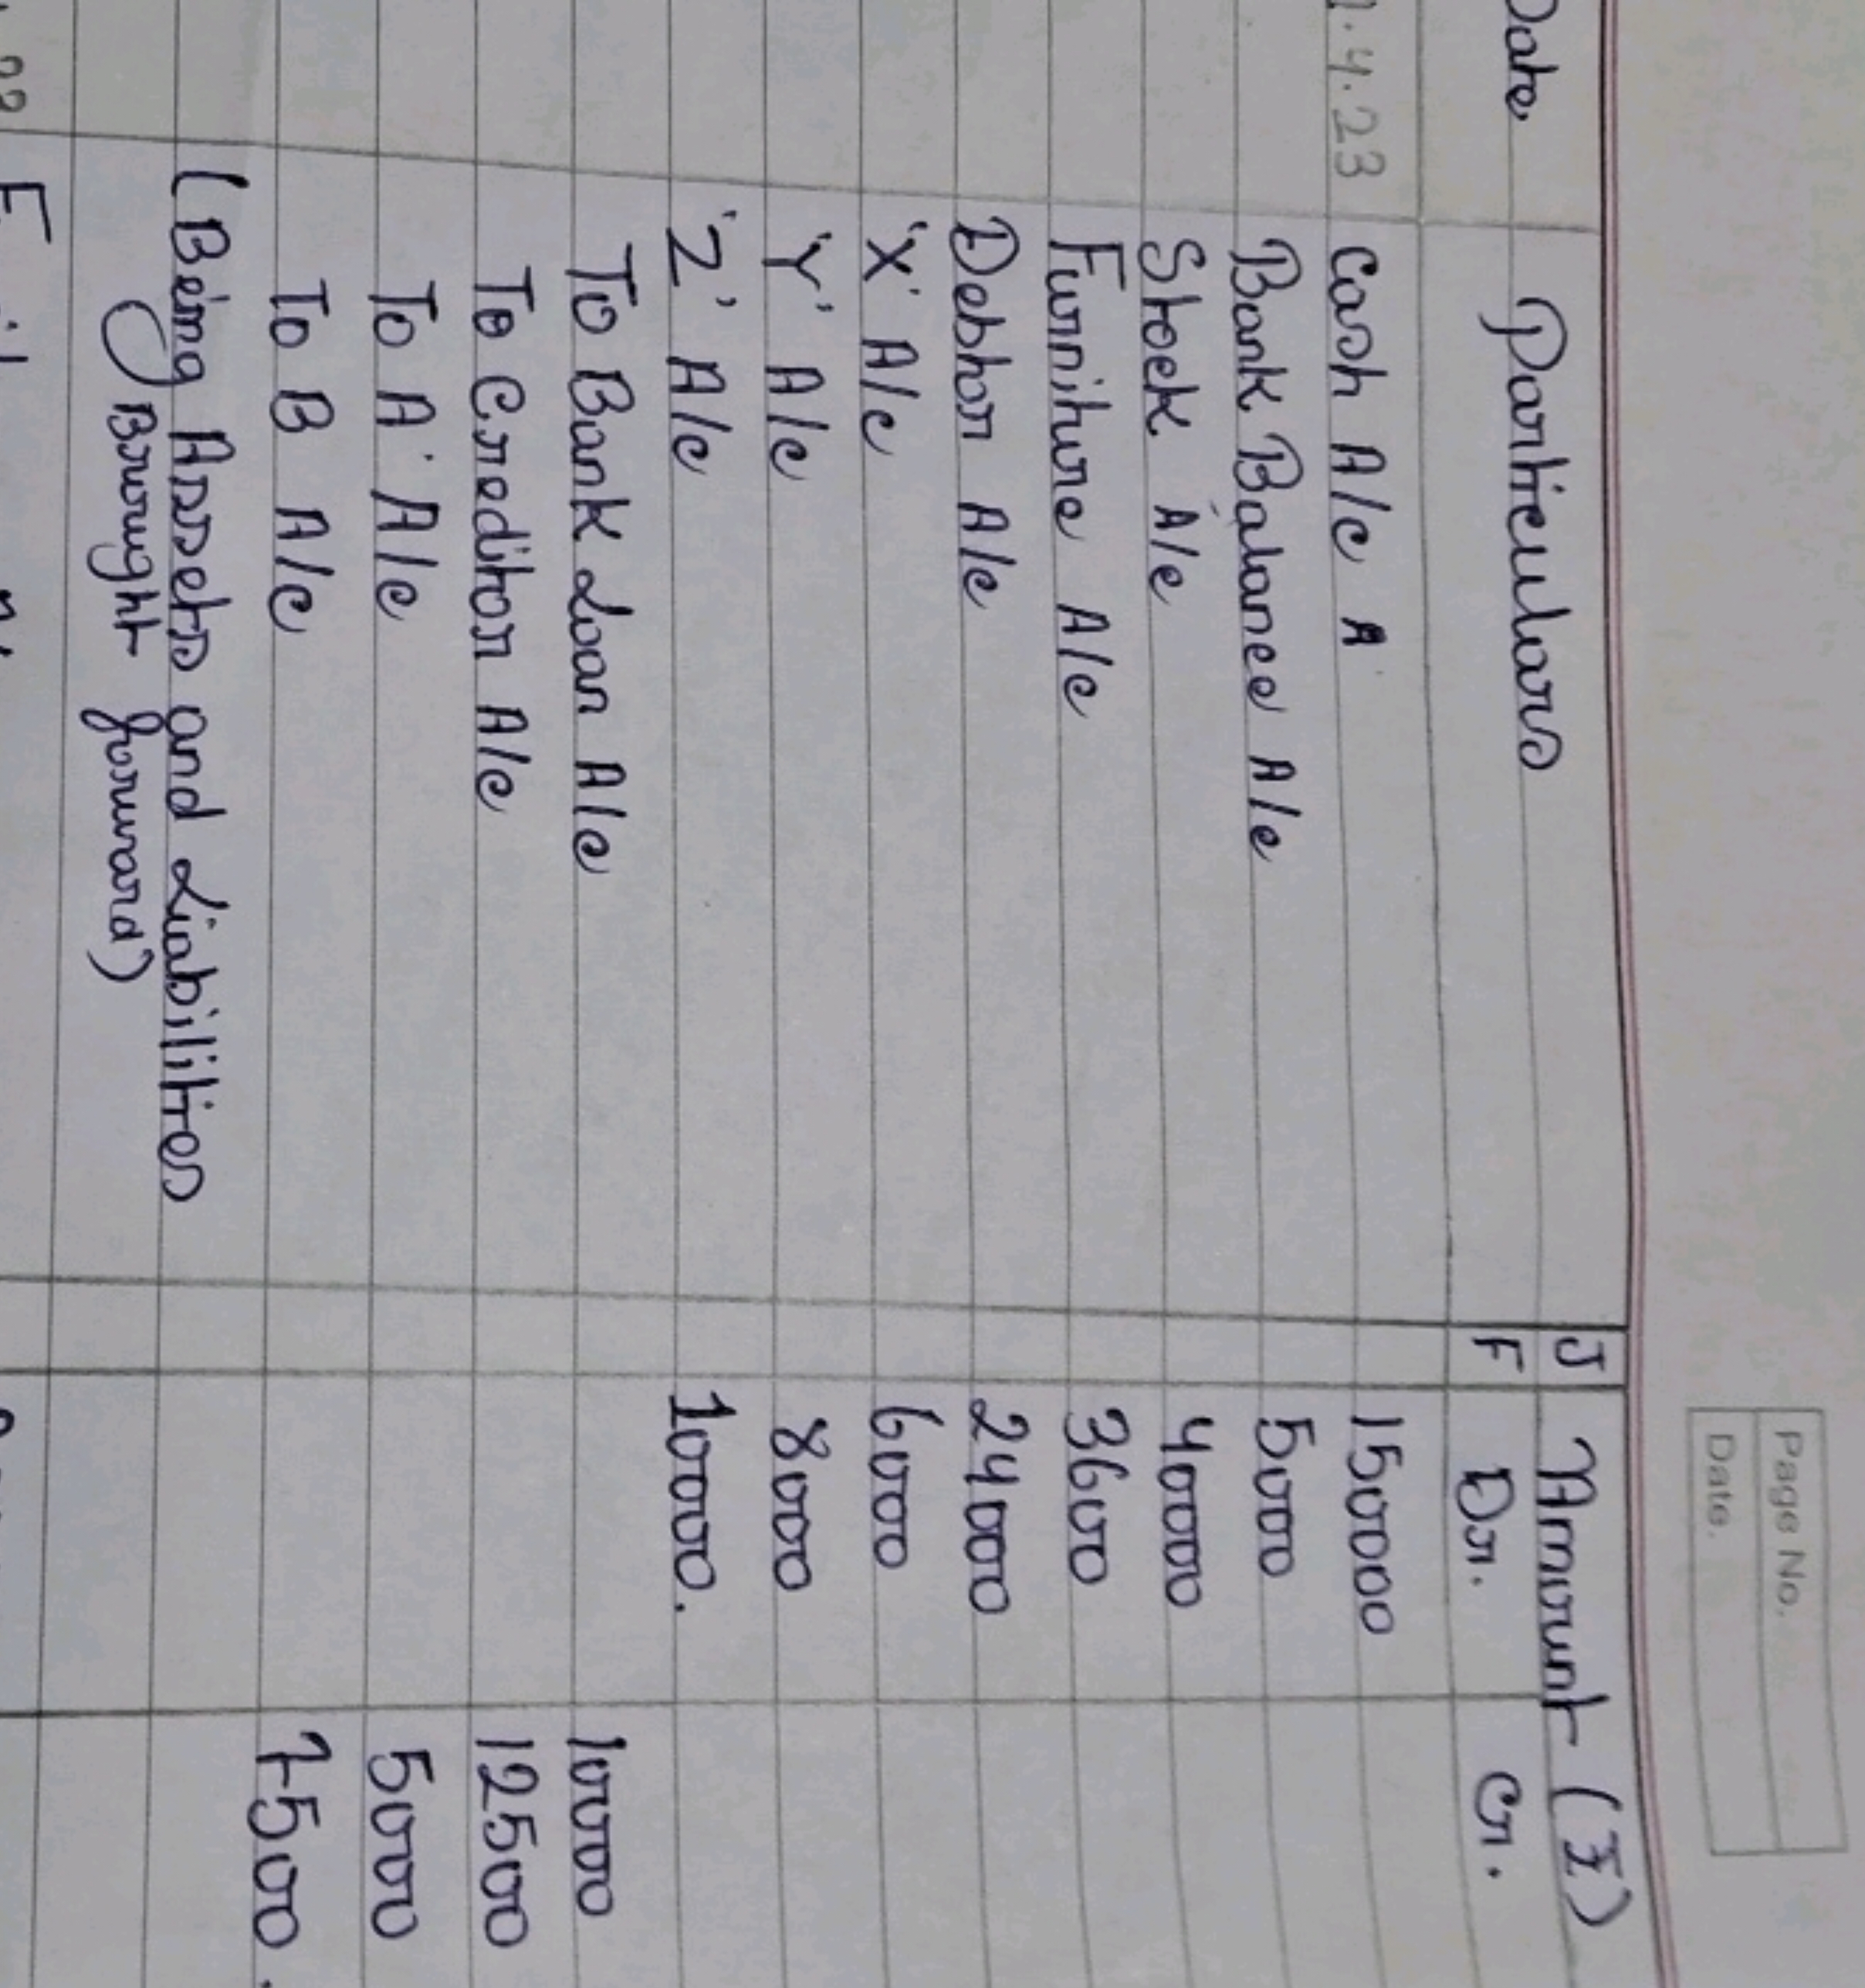 Page No.
Date.
Date Particulars J F Amount (₹)
Dr. Cr.
1.4.23 Cash A/c A 150000
Bank Balance A/c 5000
Stock A/c 40000
Furniture A/c 3600
Debtor A/c 24000
'X' A/c 6000
'Y' A/c 8000
'Z' A/c 10000.
To Bank Loan A/c 10000
To Creditor A/c 12500
To A' A/c 5000
To B A/c 7500.
(Being Assets and Liabilities
Brought forward)